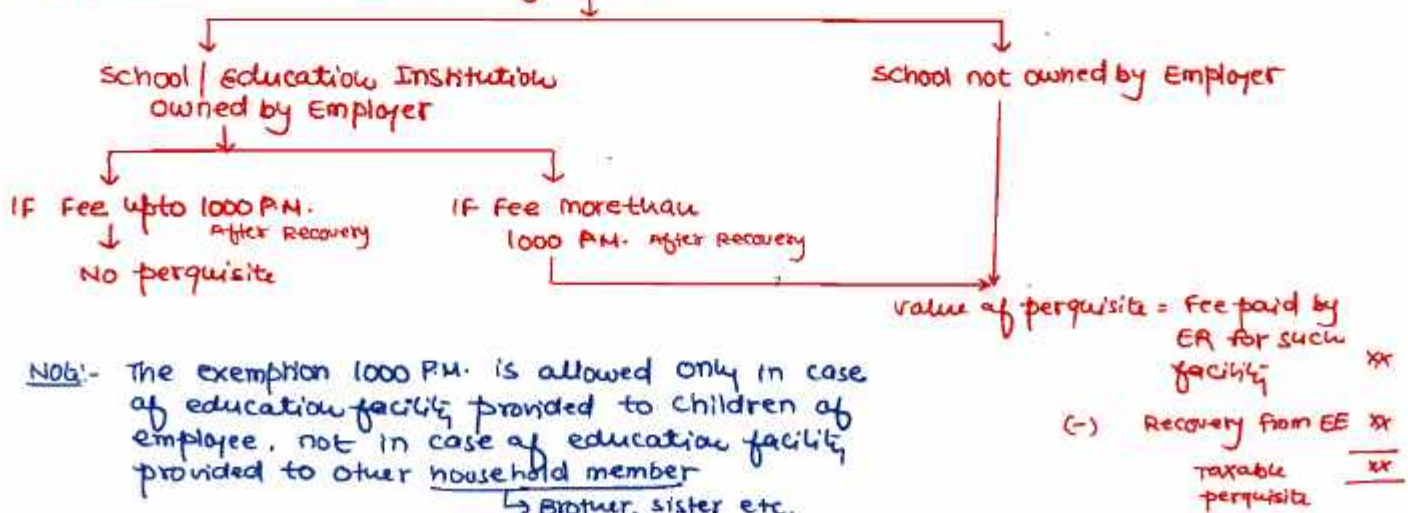 School | Education Institution
owned by Employer
School not owned by Employer
IF Fee upto 1000 P.M.
After Recovery
No perquisite
IF Fee morethan
1000 P.M. After Recovery
value of perquisite = Fee paid by
ER for such
facility xx
(-) Recovery from EE xx
Taxable xx
perquisite
Note:- The exemption 1000 P.M. is allowed only in case
of education facility provided to children of
employee. not in case of education facility
provided to other household member
↳ Brother, sister etc.